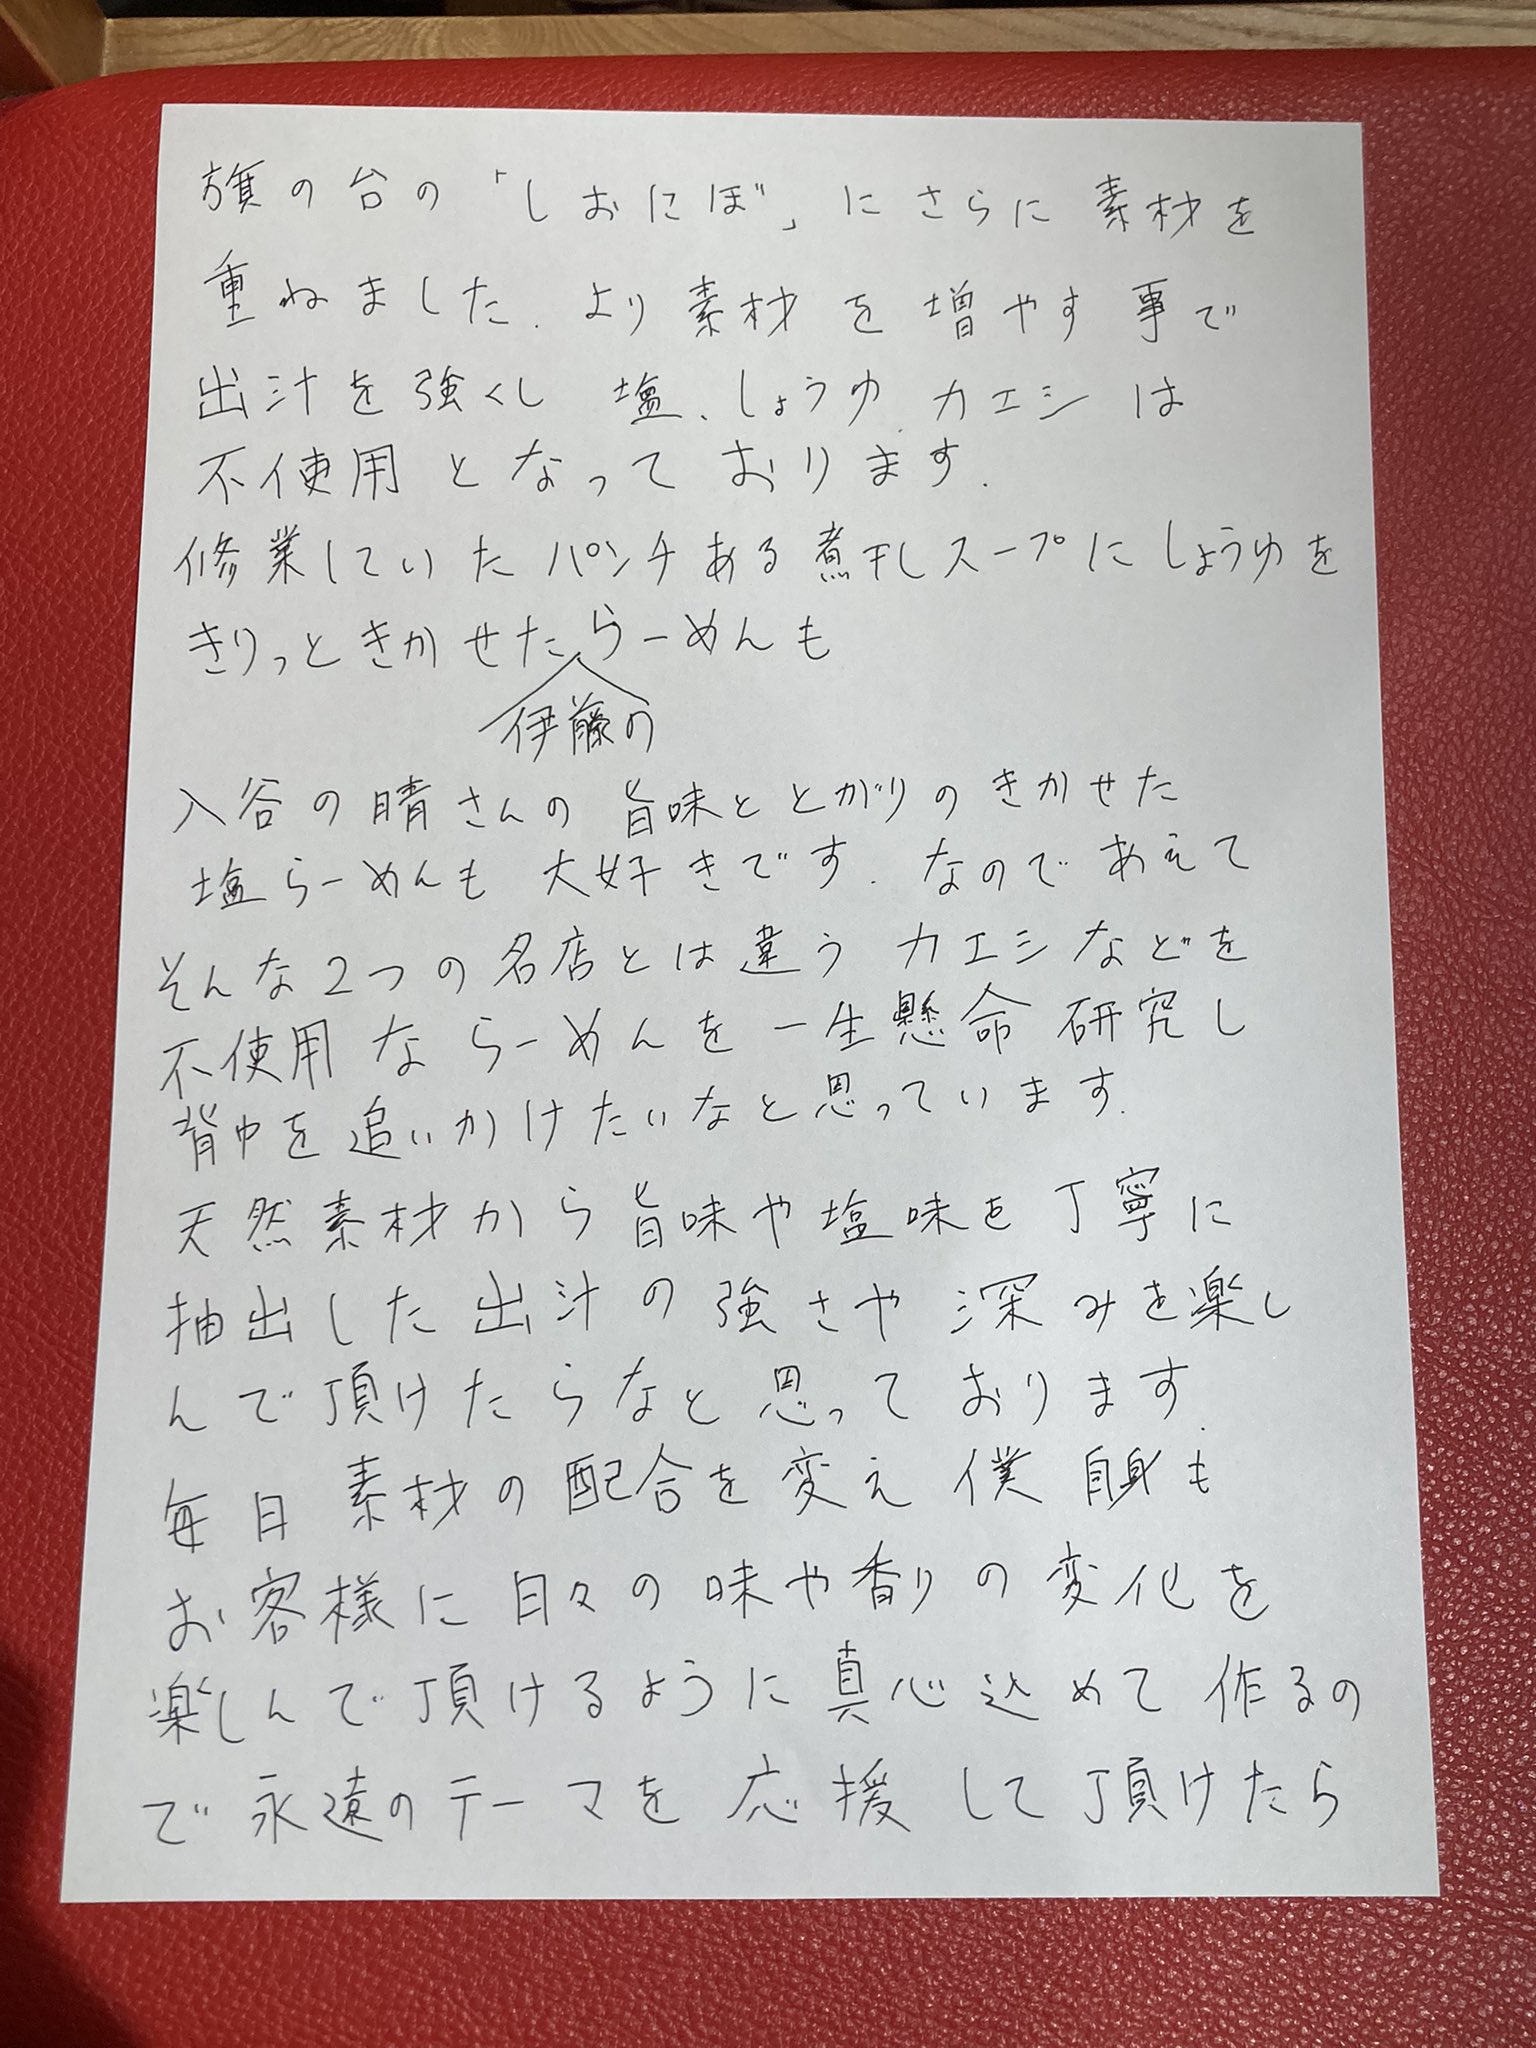 旗の台の「しおにぼ」にさらに素材を
重ねました. より素材を増やす事で
出汁を強くし 塩、しょうゆ カエシは
不使用となっております.
修業していたパンチある煮干しスープにしょうゆを
きりっときかせたらーめんも
伊藤の
入谷の晴さんの旨味ととがりのきかせた
塩らーめんも大好きです. なのであえて
そんな2つの名店とは違うカエシなどを
不使用ならーめんを一生懸命研究し
背中を追いかけたいなと思っています.
天然素材から旨味や塩味を丁寧に
抽出した出汁の強さや深みを楽し
んで頂けたらなと思っております.
毎日素材の配合を変え僕自身も
お客様に日々の味や香りの変化を
楽しんで頂けるように真心込めて作るの
で永遠のテーマを応援して頂けたら